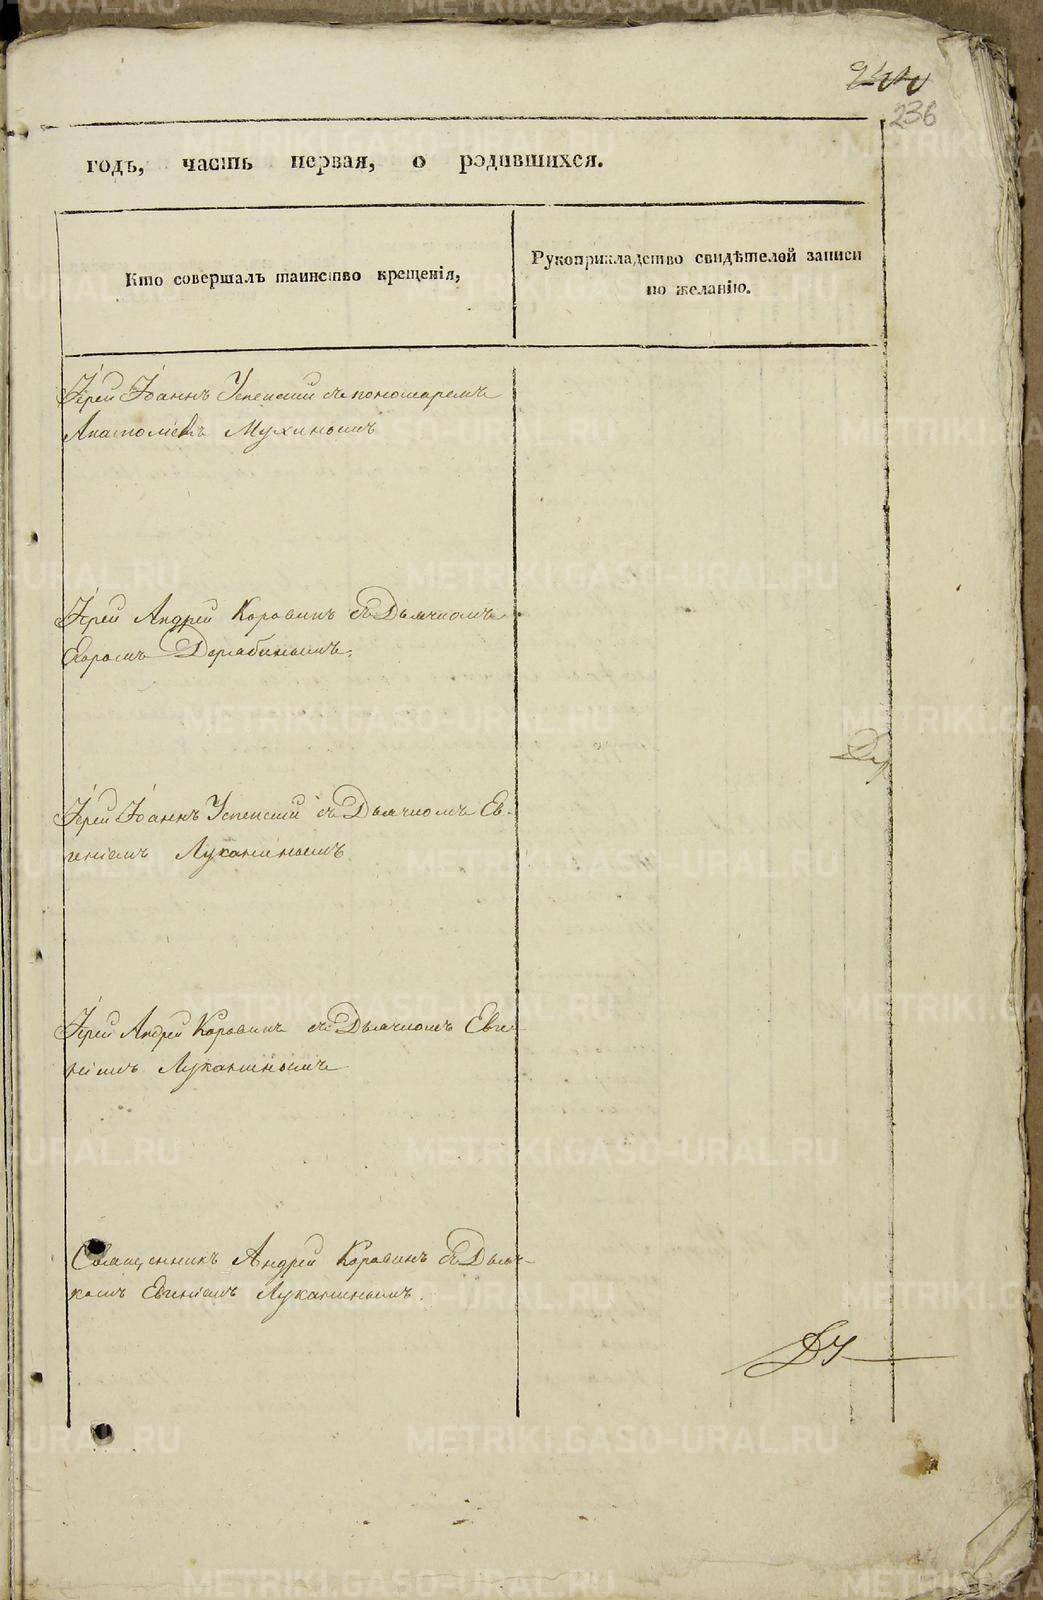 236
годъ, часть первая, о родившихся.
Кто совершалъ таинство крещенія,
Рукоприкладство свидѣтелей записи
по желанію.
Іерей Іоаннъ Успенскій съ пономаремъ
Анатоліемъ Мухинымъ
Іерей Андрей Коровинъ съ Дьячкомъ
Егоромъ Дерябинымъ.
Іерей Іоаннъ Успенскій съ Дьячкомъ Ев-
геніемъ Луканинымъ
Іерей Андрей Коровинъ съ Дьячкомъ Евге-
ніемъ Луканинымъ
Священникъ Андрей Коровинъ съ Дьяч-
комъ Евгеніемъ Луканинымъ.
METRIKI.GASO-URAL.RU